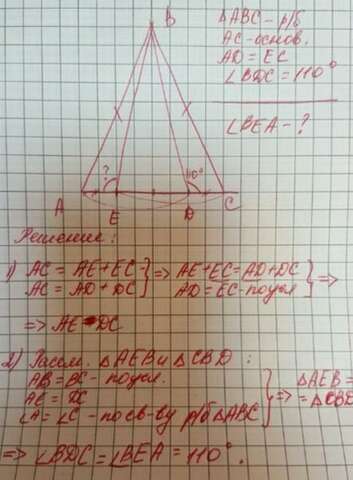 B
△ABC - р/б
AC - основ.
AD = EC
∠BDC = 110°
∠BEA - ?
? 110°
A E D C
Решение:
1) AC = AE + EC } => AE + EC = AD + DC } =>
AC = AD + DC AD = EC - по усл
=> AE = DC
2) Рассм. △AEB и △CBD :
AB = BC - по усл.
AE = DC } => △AEB =
∠A = ∠C - по св-ву р/б △ABC = △CBD
=> ∠BDC = ∠BEA = 110°.